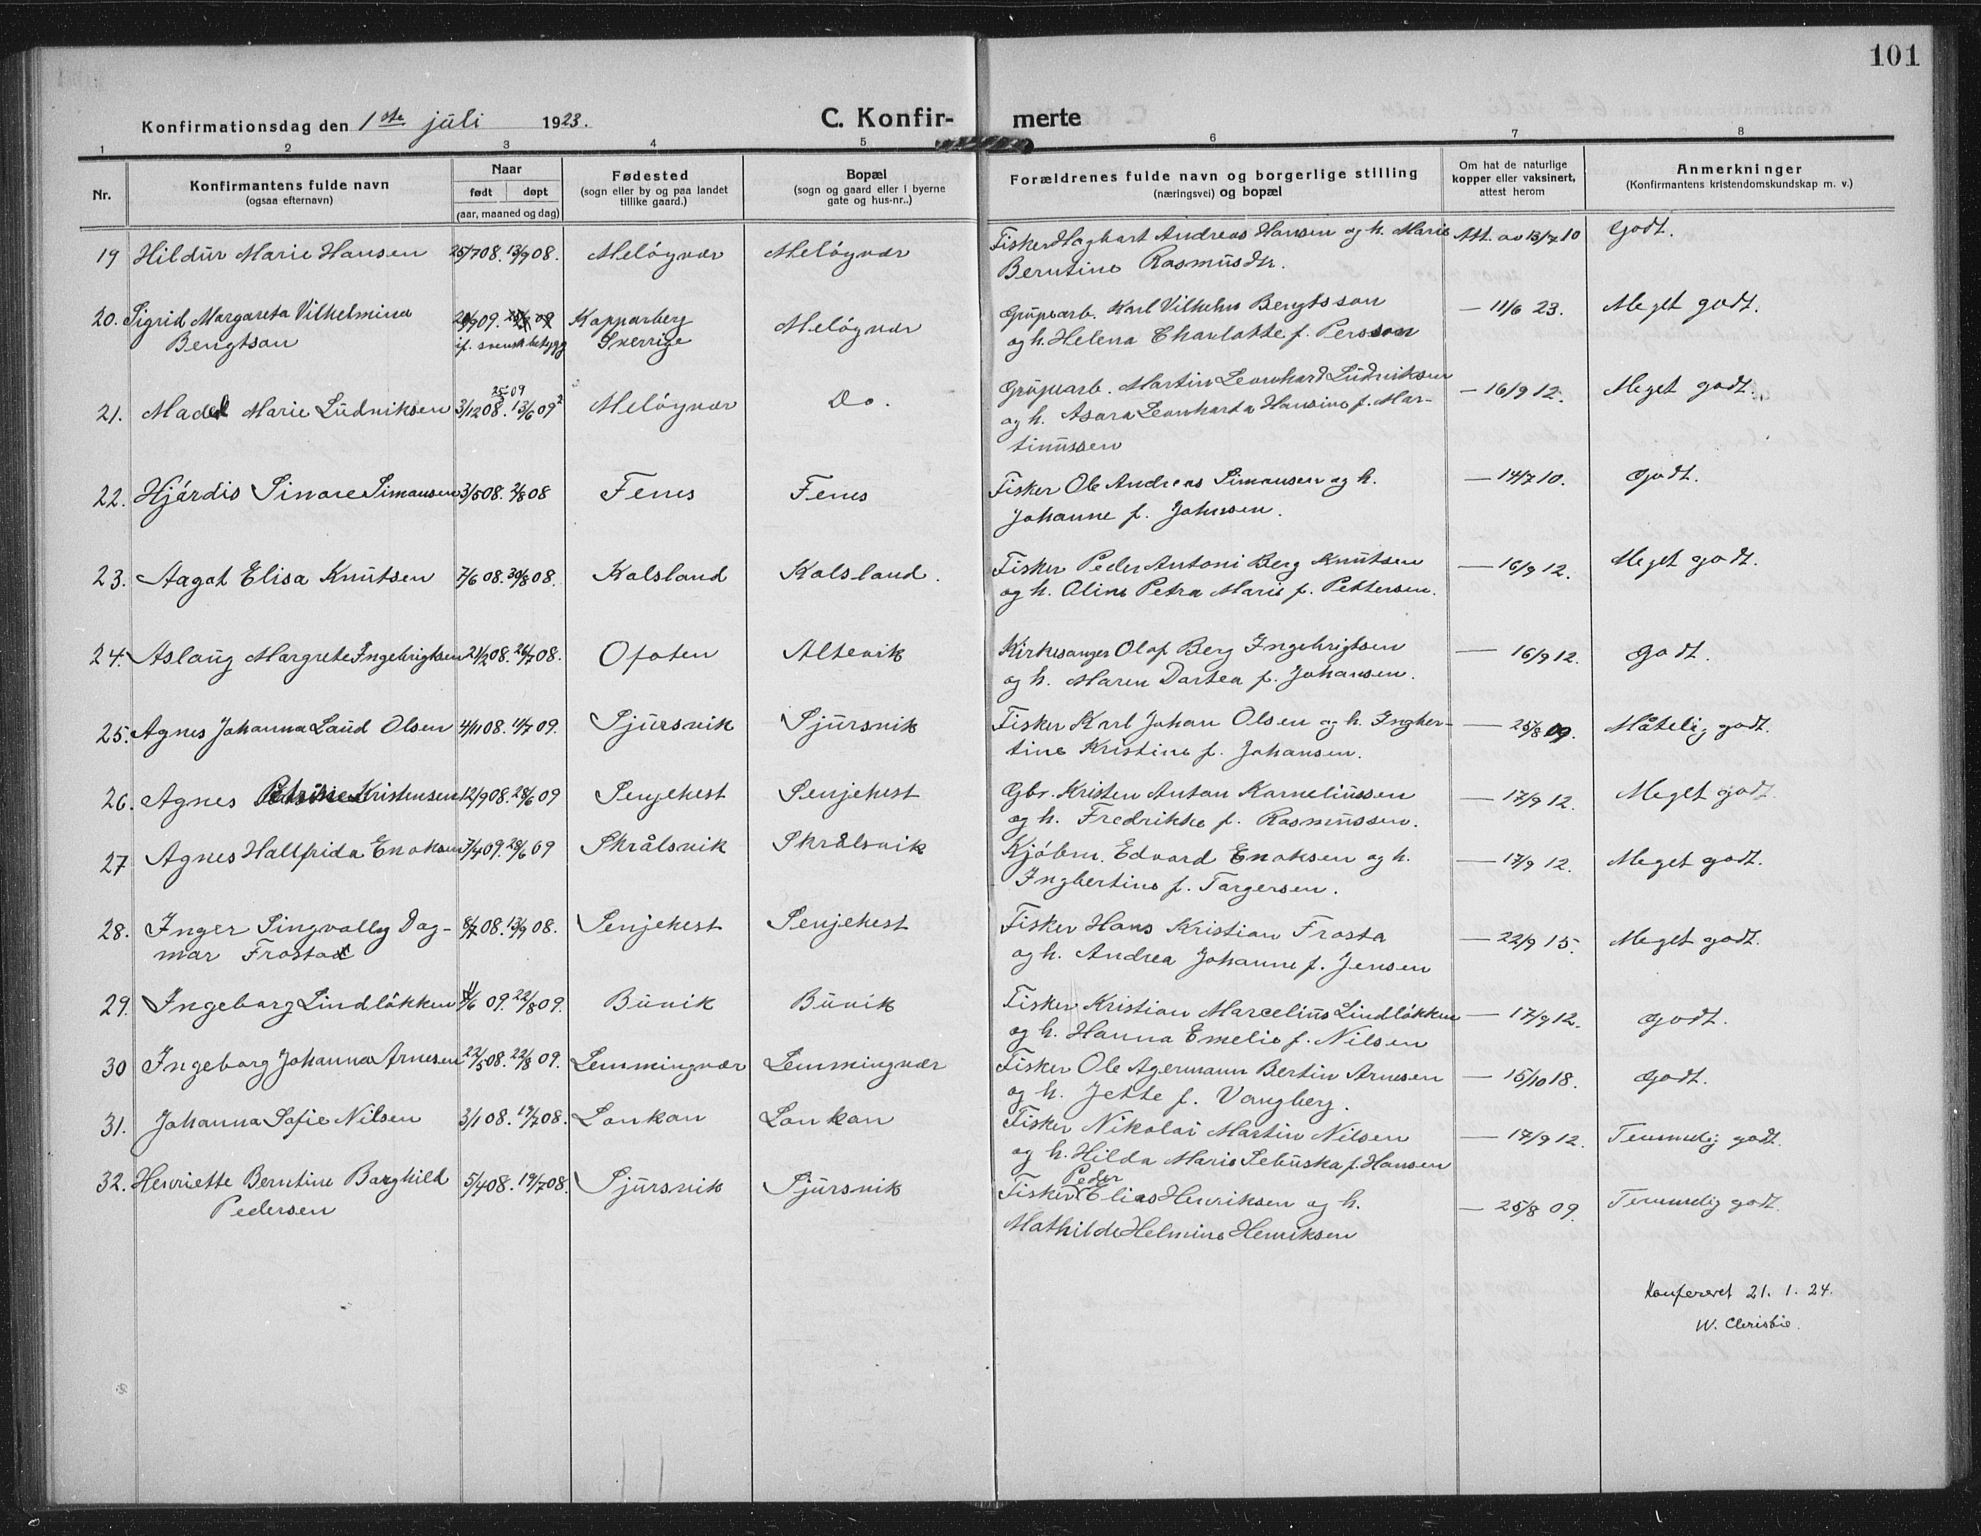 101
Konfirmationsdag den 1ste juli 1923.
C. Konfir- merte
1 2 3 4 5 6 7 8
Nr.
Konfirmantens fulde navn
(ogsaa efternavn)
Naar
født døpt
(aar, maaned og dag)
Fødested
(sogn eller by og paa landet
tillike gaard.)
Bopæl
(sogn og gaard eller i byerne
gate og hus-nr..)
Forældrenes fulde navn og borgerlige stilling
(næringsvei) og bopæl
Om hat de naturlige
kopper eller vaksinert,
attest herom
Anmerkninger
(Konfirmantens kristendomskundskap m. v.)
19 Hildur Marie Hansen 25/7 08. 13/9 08. Meløyvær Meløyvær Fisker Hagbart Andreas Hansen og h. Marie Att. av 13/7 10 Godt.
Berntine Rasmusdtr.
20. Sigrid Margareta Vilhelmina 09. Kopparberg Meløyvær Grubearb. Karl Vilhelm Bengtsson — 11/6 23. Meget godt.
Bengtson if. svensk Sverrige og h. Helena Charlotte f. Persson
25 09
21. Marie Ludviksen 3/12 08. 13/6 09 Meløyvær Do. Grubearb. Martin Leonhard Ludviksen — 16/9 12. Meget godt.
og h. Asora Leonharda Hansine f. Mar-
tinussen
22. Hjørdis Simonsen 3/5 08. 2/8 08 Fenes Fenes Fisker Ole Andreas Simonsen og h. — 14/7 10. Godt.
Johanne f. Johnsen.
23. Aagot Elisa Knutsen 7/6 08. 30/8 08. Kalsland Kalsland. Fisker Peder Antoni Berg Knutsen — 16/9 12. Meget godt.
og h. Oline Petra Marie f. Pettersen.
24. Aslaug Margrete Ingebrigtsen 21/2 08. 26/7 08. Ofoten Altevik Kirkesanger Olaf Berg Ingebrigtsen — 16/9 12. Godt.
og h. Maren Dortea f. Johansen.
25. Agnes Johanna Laud Olsen 4/11 08. 11/7 09. Sjursvik Sjursvik Fisker Karl Johan Olsen og h. Ingber- — 25/8 09. Måtelig godt.
tine Kristine f. Johansen.
26. Agnes Petrine Kristensen 12/9 08. 28/6 09 Senjehest Senjehest Gbr. Kristen Anton Kornelinssen — 17/9 12. Meget godt.
og h. Fredrikke f. Rasmussen.
27 Agnes Hallfrida Enoksen 7/4 09. 28/6 09 Skrålsvik Skrålsvik Kjøbm. Edvard Enoksen og h. — 17/9 12. Meget godt.
Ingbertine f. Torgersen.
28. Inger Singvally Dag- 8/7 08. 13/9 08. Senjehest Senjehest Fisker Hans Kristian Frosta — 22/9 15. Meget godt.
mar Frosta og h. Andrea Johanne f. Jensen
29. Ingeborg Lindløkken 11/6 09. 22/8 09. Buvik Buvik Fisker Kristian Marcelius Lindløkken — 17/9 12. Godt.
og h. Hanna Emelie f. Nilsen
30 Ingeborg Johanna Arnesen 22/5 08. 22/8 09. Lemmingvær Lemmingvær Fisker Ole Agermann Bertin Arnesen — 15/10 18. Godt.
og h. Jette f. Vangberg.
31. Johanna Sofie Nilsen 3/1 08. 19/7 08. Lonkan Lonkan Fisker Nikolai Martin Nilsen — 17/9 12. Temmelig godt.
og h. Hilda Marie f. Hansen
32. Henriette Berntine Borghild 5/4 08. 19/7 08. Sjursvik Sjursvik Fisker Peder Elias Henriksen og h. — 25/8 09. Temmelig godt.
Pedersen Mathilde Helmine Henriksen
Konfereret 21. 1. 24.
W. Christie.